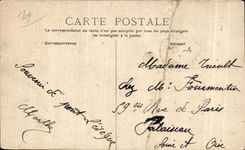 CARTE POSTALE
La correspondance au recto n'est pas acceptée par tous les pays étrangers
(se renseigner à la poste)
Correspondance
Adresse
Madame
chez Mr Fourmentin
59 Rue de Paris
Palaiseau
Seine et Oise
Souvenir de pont l'évêque